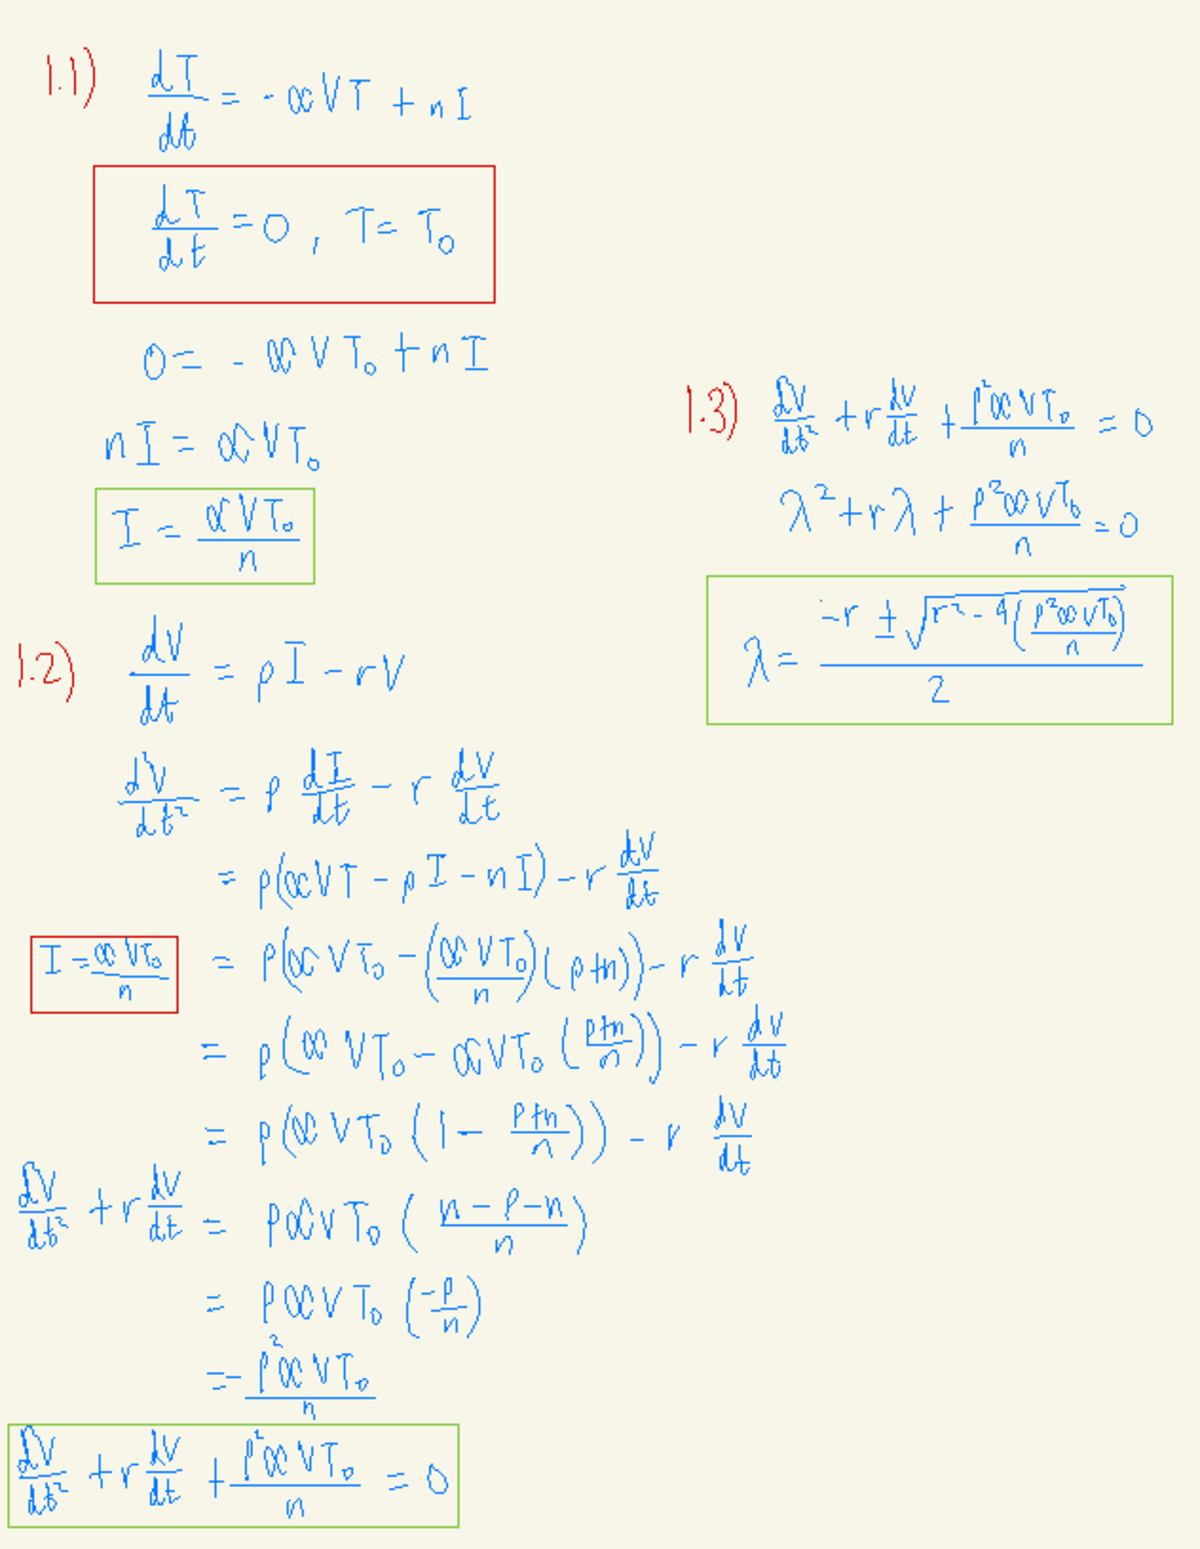 1.1) dT/dt = -αVT + nI
dT/dt = 0, T = T₀
0 = -αVT₀ + nI
nI = αVT₀
I = αVT₀/n
1.2) dV/dt = ρI - rV
d²V/dt² = ρ dI/dt - r dV/dt
= ρ(αVT - ρI - nI) - r dV/dt
I = αVT₀/n = ρ(αVT₀ - (αVT₀/n)(ρ+n)) - r dV/dt
= ρ(αVT₀ - αVT₀((ρ+n)/n)) - r dV/dt
= ρ(αVT₀(1 - (ρ+n)/n)) - r dV/dt
d²V/dt² + r dV/dt = ραVT₀((n-ρ-n)/n)
= ραVT₀(-ρ/n)
= - ρ²αVT₀/n
d²V/dt² + r dV/dt + ρ²αVT₀/n = 0
1.3) d²V/dt² + r dV/dt + ρ²αVT₀/n = 0
λ² + rλ + ρ²αVT₀/n = 0
λ = (-r ± √(r² - 4(ρ²αVT₀/n)))/2